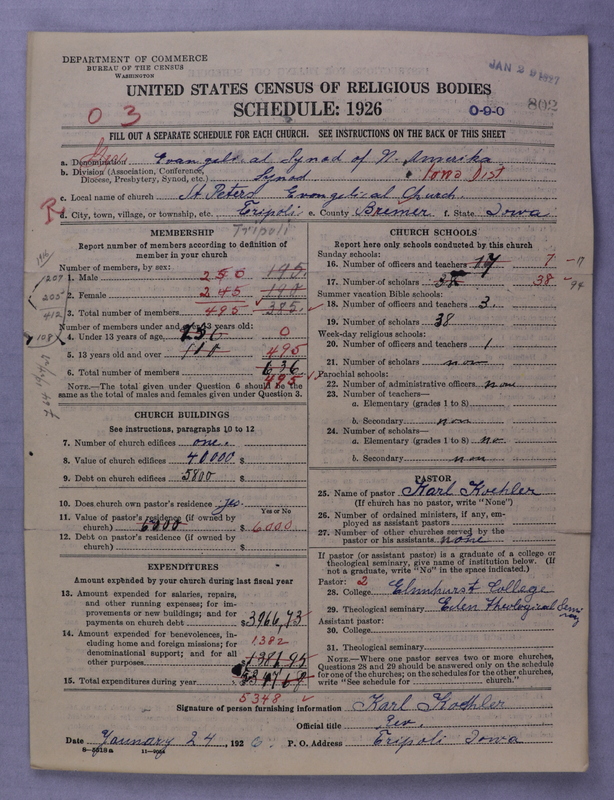 DEPARTMENT OF COMMERCE
BUREAU OF THE CENSUS
WASHINGTON
JAN 29 1927
UNITED STATES CENSUS OF RELIGIOUS BODIES
SCHEDULE: 1926
0 3
0-9-0
802
FILL OUT A SEPARATE SCHEDULE FOR EACH CHURCH. SEE INSTRUCTIONS ON THE BACK OF THIS SHEET
a. Denomination Evangelical Synod of N. Amerika
b. Division (Association, Conference, Diocese, Presbytery, Synod, etc.) Synod Iowa Dist
c. Local name of church St Peters Evangelical Church
d. City, town, village, or township, etc. Tripoli e. County Bremer f. State Iowa
Tripoli
MEMBERSHIP
Report number of members according to definition of member in your church
Number of members, by sex:
1. Male 250 195
2. Female 245 190
3. Total number of members 495 385
Number of members under and over 13 years old:
4. Under 13 years of age 0
5. 13 years old and over 495
6. Total number of members 636
495
NOTE.—The total given under Question 6 should be the same as the total of males and females given under Question 3.
207
205
412
108
CHURCH BUILDINGS
See instructions, paragraphs 10 to 12
7. Number of church edifices one.
8. Value of church edifices 40000 $
9. Debt on church edifices 5800 $
10. Does church own pastor's residence yes
Yes or No
11. Value of pastor's residence (if owned by church) 6000 $ 6000
12. Debt on pastor's residence (if owned by church) $
EXPENDITURES
Amount expended by your church during last fiscal year
13. Amount expended for salaries, repairs, and other running expenses; for improvements or new buildings; and for payments on church debt $3966,73
14. Amount expended for benevolences, including home and foreign missions; for denominational support; and for all other purposes 1381,95
1382
15. Total expenditures during year
5348
CHURCH SCHOOLS
Report here only schools conducted by this church
Sunday schools:
16. Number of officers and teachers 17 7 -17
17. Number of scholars 38 -94
Summer vacation Bible schools:
18. Number of officers and teachers 3.
19. Number of scholars 38
Week-day religious schools:
20. Number of officers and teachers 1
21. Number of scholars non
Parochial schools:
22. Number of administrative officers non
23. Number of teachers—
a. Elementary (grades 1 to 8)
b. Secondary non
24. Number of scholars—
a. Elementary (grades 1 to 8) no
b. Secondary non
PASTOR
25. Name of pastor Karl Koehler
(If church has no pastor, write "None")
26. Number of ordained ministers, if any, employed as assistant pastors
27. Number of other churches served by the pastor or his assistants none
If pastor (or assistant pastor) is a graduate of a college or theological seminary, give name of institution below. (If not a graduate, write "No" in the space indicated.)
Pastor: 2
28. College Elmhurst College
29. Theological seminary Eden Theological Seminary
Assistant pastor:
30. College
31. Theological seminary
NOTE.—Where one pastor serves two or more churches, Questions 28 and 29 should be answered only on the schedule for one of the churches; on the schedules for the other churches, write "See schedule for church."
Signature of person furnishing information Karl Koehler
Official title Rev.
Date January 24, 1926 P. O. Address Tripoli Iowa
8-5518a 11-9054